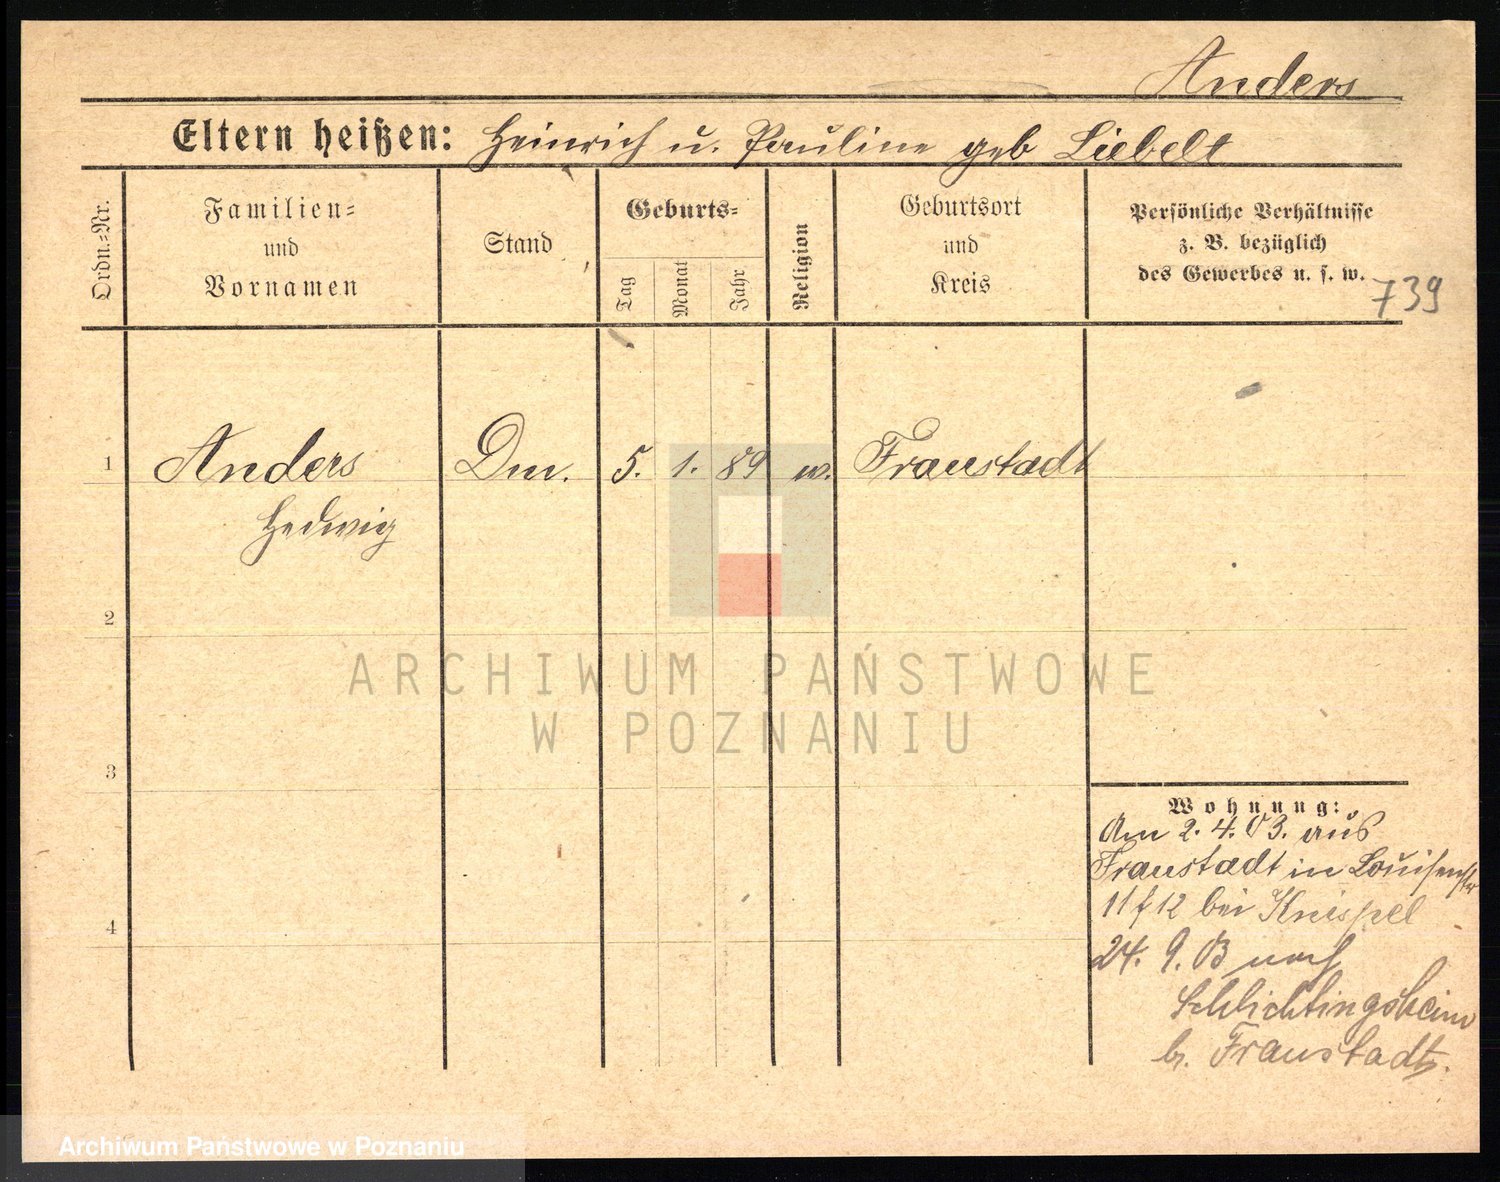 Anders
Eltern heißen: Heinrich u. Pauline geb Liebelt
Ordn.-Nr.
Familien-
und
Vornamen
Stand
Geburts-
Tag
Monat
Jahr
Religion
Geburtsort
und
Kreis
Persönliche Verhältnisse
z. B. bezüglich
des Gewerbes u. s. w.
739
1 Anders Dm. 5. 1. 89 w. Fraustadt
Hedwig
2
3
4
Wohnung:
Am 2. 4. 03. aus
Fraustadt in Louisenstr
11 f 12 bei Knispel
24. 9. 03 nach
Schlichtingsheim
b. Fraustadt.
ARCHIWUM PAŃSTWOWE
W POZNANIU
Archiwum Państwowe w Poznaniu